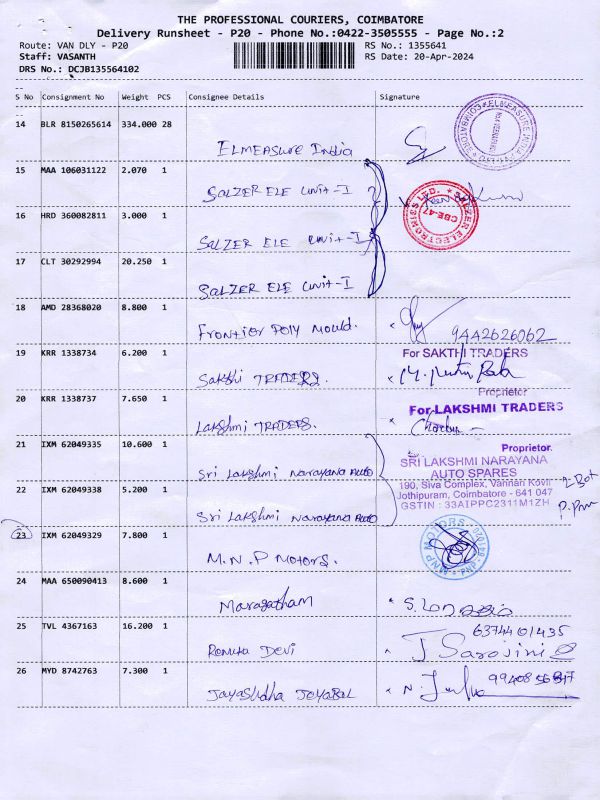 THE PROFESSIONAL COURIERS, COIMBATORE
Delivery Runsheet - P20 - Phone No.:0422-3505555 - Page No.:2
Route: VAN DLY - P20
RS No.: 1355641
Staff: VASANTH
RS Date: 20-Apr-2024
DRS No.: DCJB135564102
S No Consignment No Weight PCS Consignee Details Signature
14 BLR 8150265614 334.000 28
ELMEASURE India
15 MAA 106031122 2.070 1
SALZER ELE Unit-I
16 HRD 360082811 3.000 1
SALZER ELECTRONICS LTD.
CBE-47
SALZER ELE Unit-I
17 CLT 30292994 20.250 1
SALZER ELE Unit-I
18 AMD 28368020 8.800 1
Frontier Poly Mould.
9442626062
19 KRR 1338734 6.200 1
For SAKTHI TRADERS
Sakthi TRADERS.
Proprietor
20 KRR 1338737 7.650 1
For LAKSHMI TRADERS
Lakshmi TRADERS.
21 IXM 62049335 10.600 1
Proprietor.
SRI LAKSHMI NARAYANA
AUTO SPARES
Sri Lakshmi Narayana Auto
190, Siva Complex, Vannan Kovil
22 IXM 62049338 5.200 1
Jothipuram, Coimbatore - 641 047
GSTIN : 33AIPPC2311M1ZH
Sri Lakshmi Narayana Auto
23 IXM 62049329 7.800 1
M.N.P Motors.
24 MAA 650090413 8.600 1
Maragatham
25 TVL 4367163 16.200 1
6374401435
Renuka Devi
J Sarojini
26 MYD 8742763 7.300 1